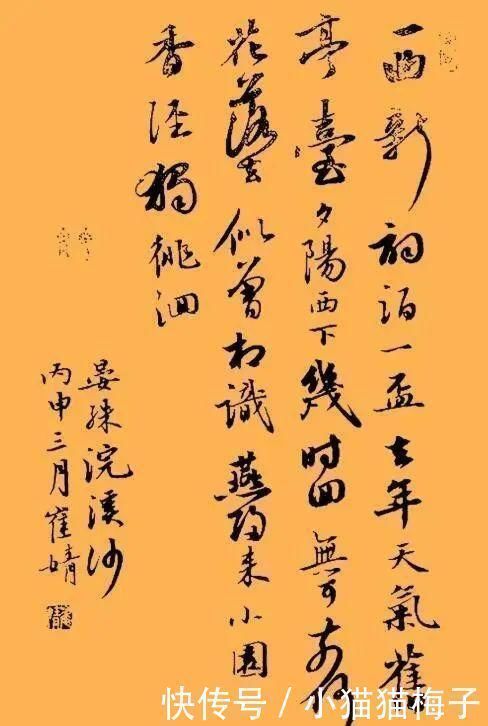 一曲新词酒一盃去年天氣舊
亭臺夕陽西下幾时回無可奈何
花落去似曾相識燕歸来小園
香徑獨徘徊
晏殊浣溪沙
丙申三月崔婧
快传号／小猫猫梅子